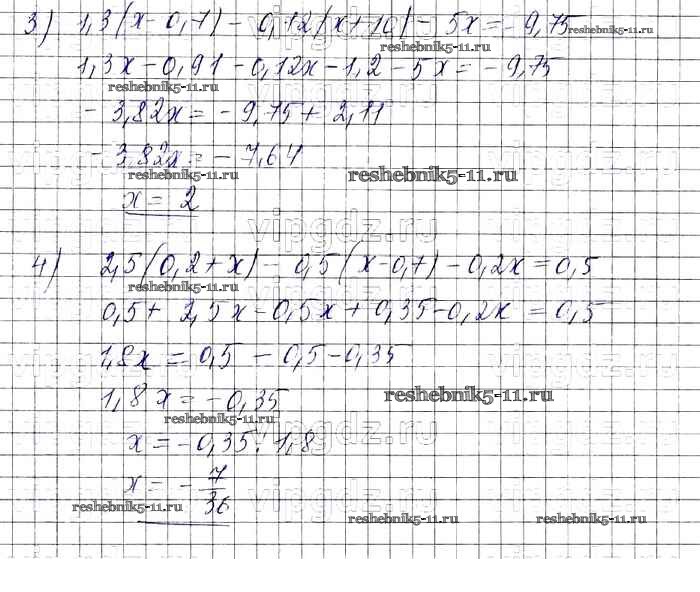 3) 1,3(x-0,7) - 0,12(x+10) - 5x = -9,75
reshebnik5-11.ru
reshebnik5-11.ru
1,3x - 0,91 - 0,12x - 1,2 - 5x = -9,75
reshebnik5-11.ru
- 3,82x = -9,75 + 2,11
- 3,82x = -7,64
reshebnik5-11.ru
reshebnik5-11.ru
x = 2
vipgdz.ru
4) 2,5(0,2+x) - 0,5(x-0,7) - 0,2x = 0,5
reshebnik5-11.ru
0,5 + 2,5x - 0,5x + 0,35 - 0,2x = 0,5
1,8x = 0,5 - 0,5 - 0,35
vipgdz.ru
1,8x = -0,35
reshebnik5-11.ru
reshebnik5-11.ru
x = -0,35 : 1,8
vipgdz.ru
x = - 7/36
vipgdz.ru
reshebnik5-11.ru
reshebnik5-11.ru
reshebnik5-11.ru